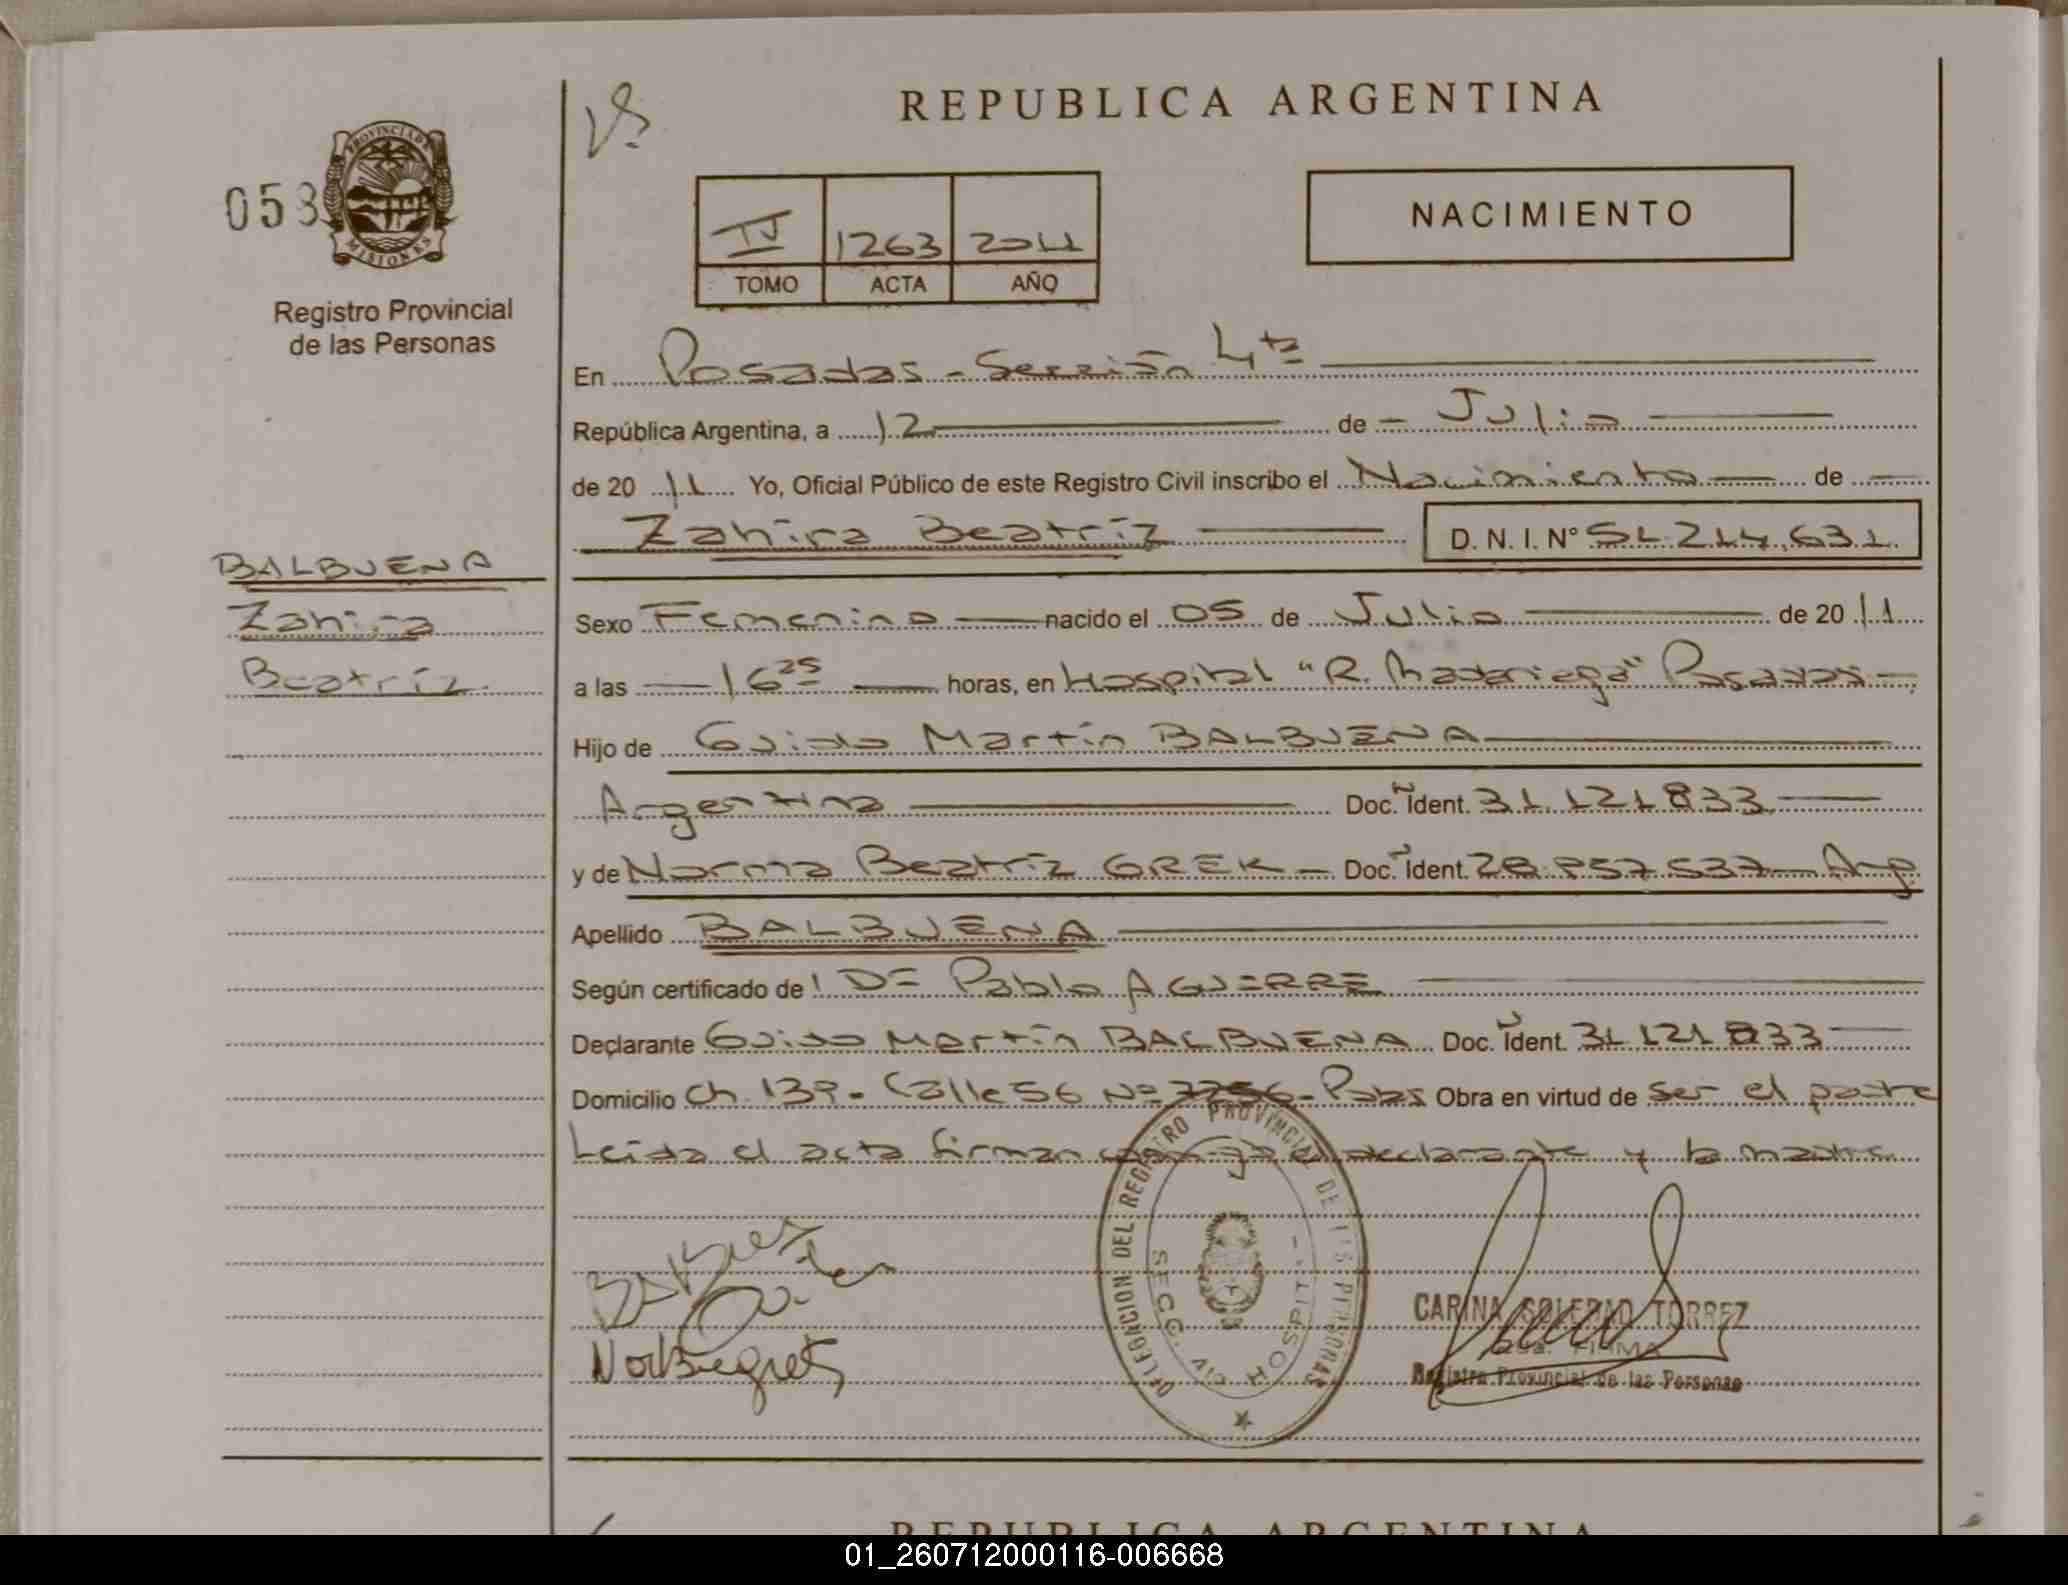 REPUBLICA ARGENTINA
053
PROVINCIA DE
MISIONES
Registro Provincial
de las Personas
II 1263 2011
TOMO ACTA AÑO
NACIMIENTO
En Posadas - Sección 4ta
República Argentina, a 12 de Julio
de 2011 Yo, Oficial Público de este Registro Civil inscribo el Nacimiento de
Zahira Beatríz D. N. I. N° 51.214.631
BALBUENA
Zahira
Beatríz
Sexo Femenino nacido el 05 de Julio de 2011
a las 16 25 horas, en Hospital "R. Madariaga" Posadas
Hijo de Guido Martín BALBUENA
Argentina Doc. Ident. 31.121.833
y de Norma Beatríz GREK Doc. Ident. 28.857.537 Arg
Apellido BALBUENA
Según certificado de Pablo AGUERRE
Declarante Guido Martín BALBUENA Doc. Ident. 31.121.833
Domicilio Ch. 139 - Calle 56 Nº 7756 - Pdas Obra en virtud de ser el padre
Leida el acta firman declarante y la madre
DELEGACION DEL REGISTRO PROVINCIAL DE LAS PERSONAS
SECC.
HOSPIT
CARINA SOLEDAD TORREZ
FIRMA
Registro Provincial de las Personas
REPUBLICA ARGENTINA
01_260712000116-006668